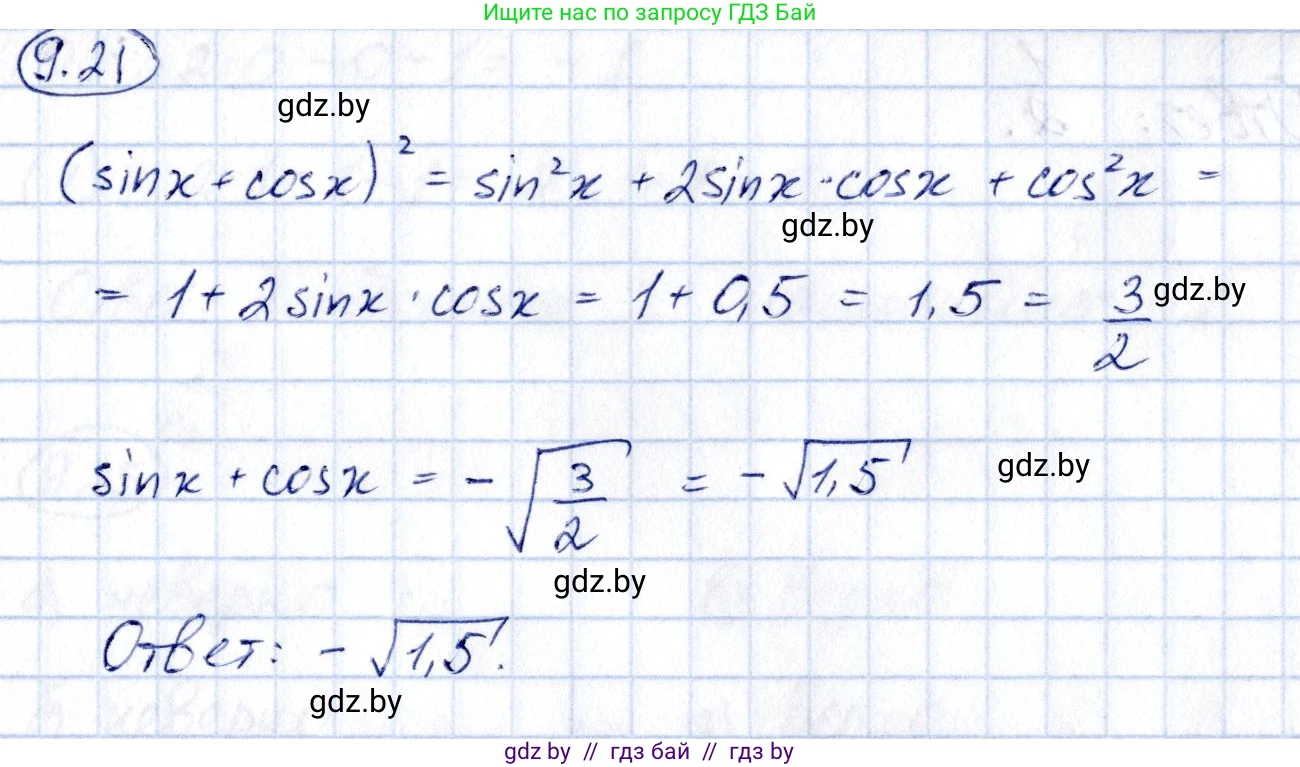 Ищите нас по запросу ГДЗ Бай
9.21
gdz.by
(sinx + cosx)² = sin²x + 2sinx·cosx + cos²x =
gdz.by
= 1 + 2sinx·cosx = 1 + 0,5 = 1,5 = 3/2
gdz.by
sinx + cosx = -√(3/2) = -√1,5
gdz.by
gdz.by
Ответ: -√1,5.
gdz.by
gdz by // гдз бай // гдз by